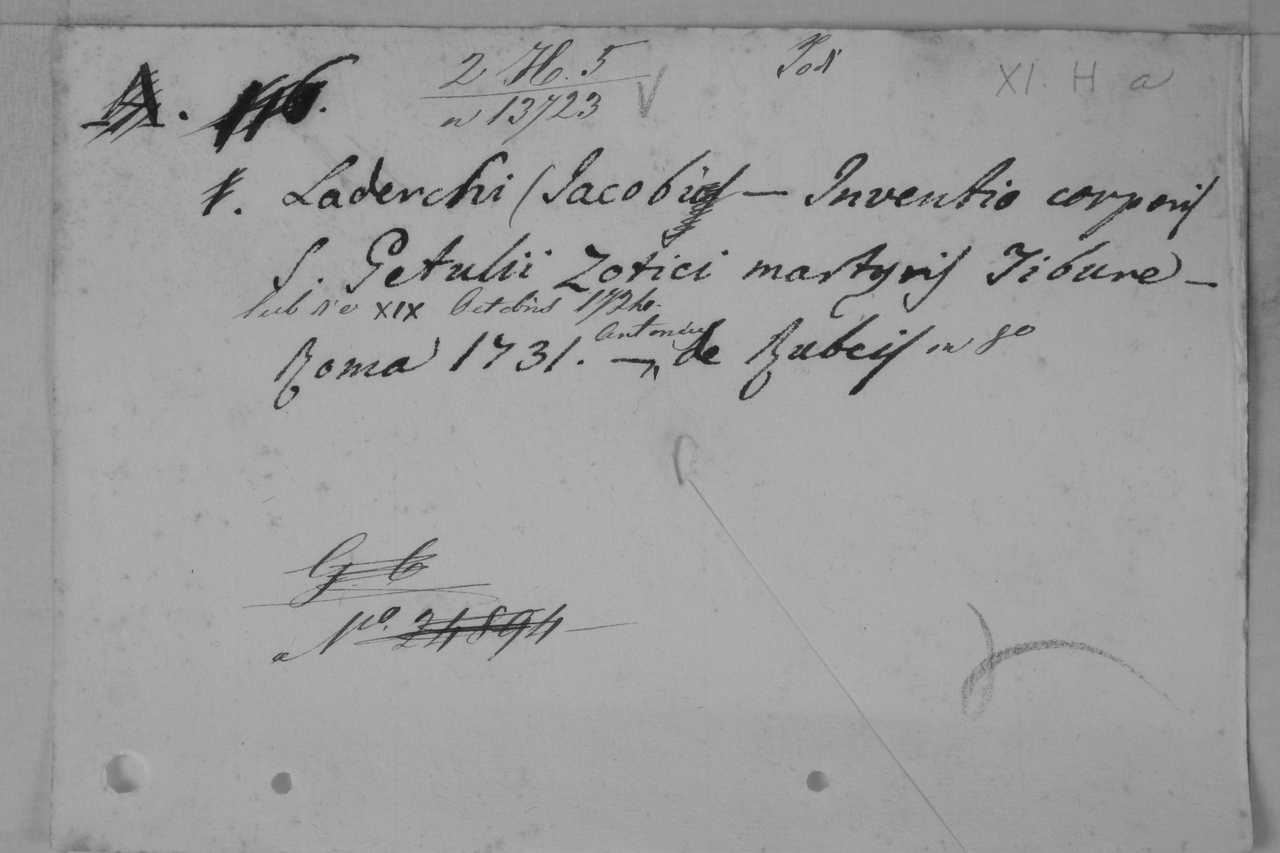 2 H. 5
n 13723
XI. H a
Laderchi (Jacobus — Inventio corporis
S. Getulii Zotici martyris Tibure —
sub die XIX Octobris 172
Roma 1731. — Antonius de Rubeis in 8º
G. C
a Nº. 24894